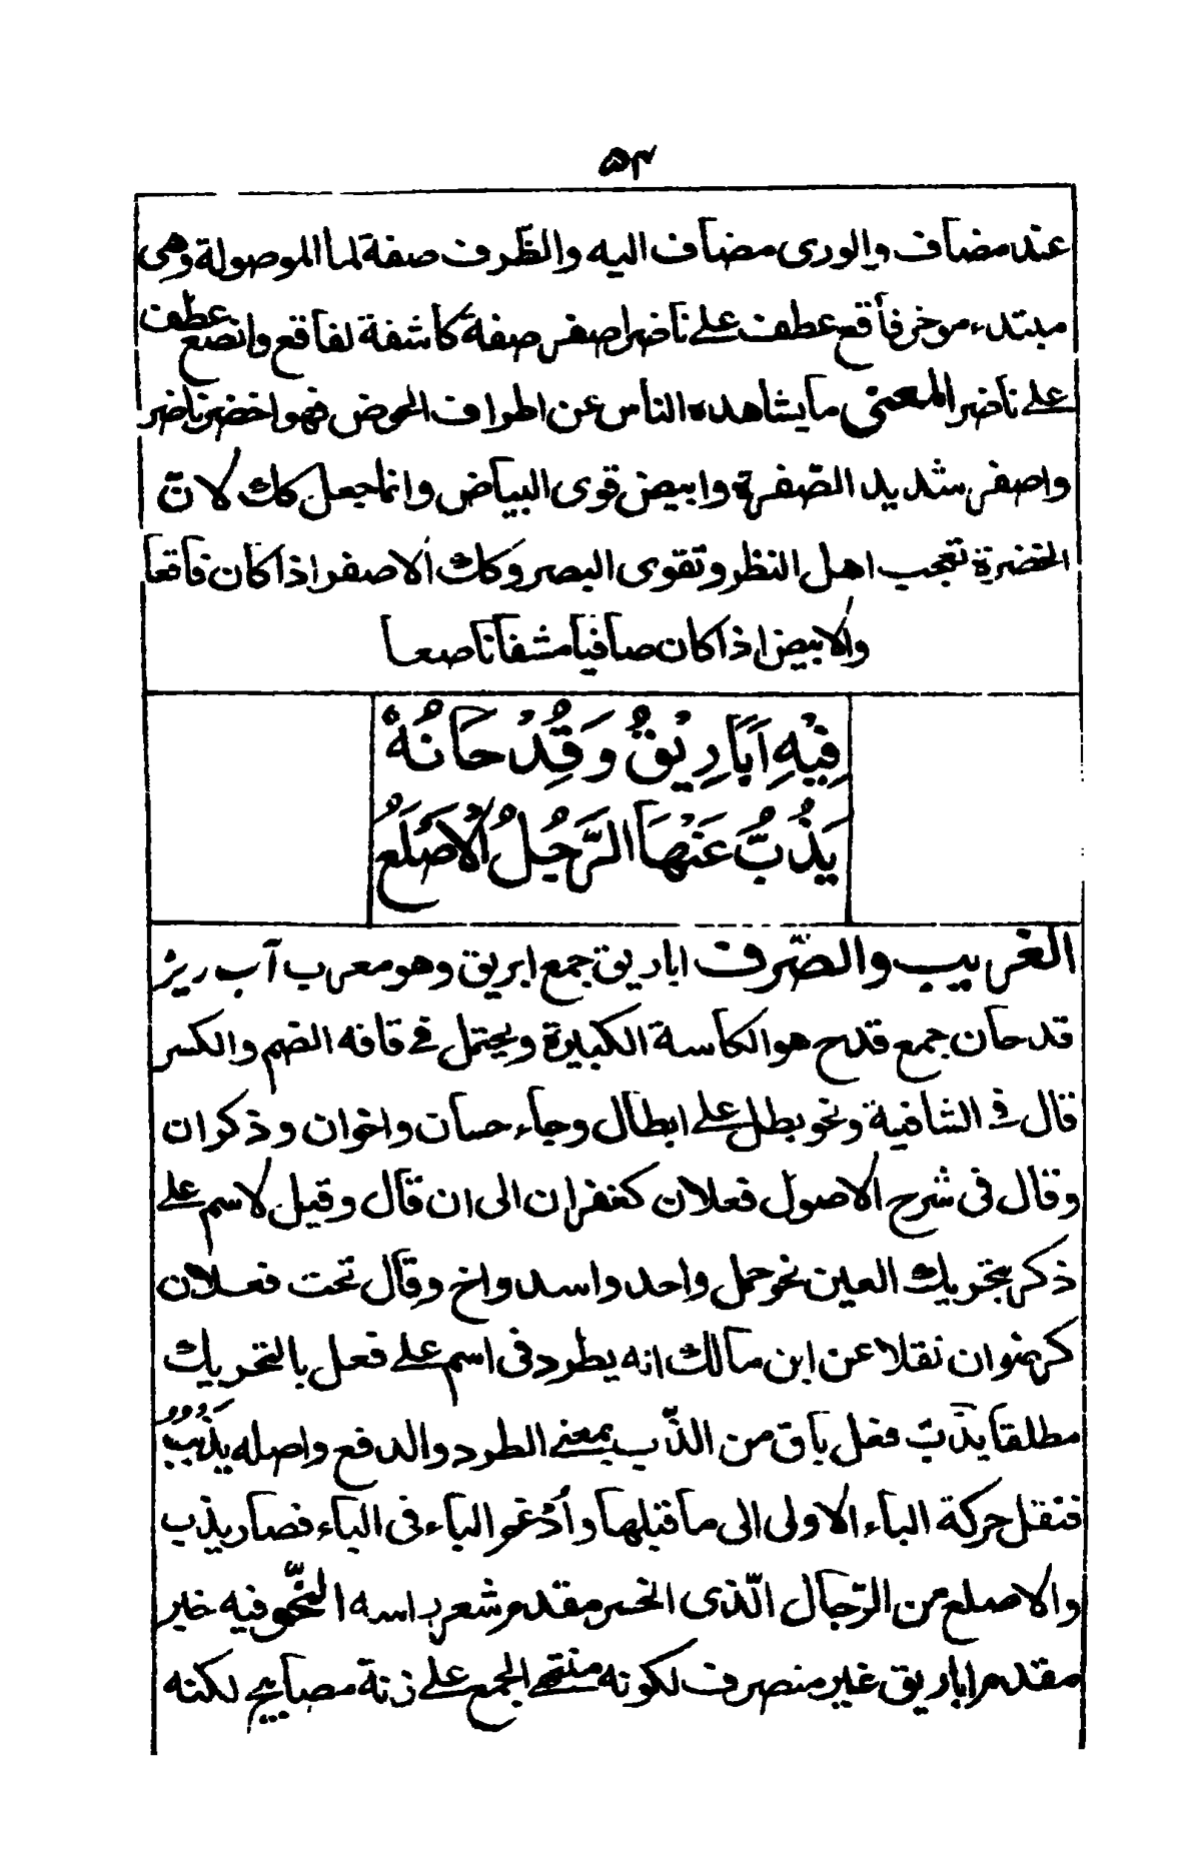 ۵۴
عند مضاف والورى مضاف اليه والظّرف صفة لما الموصولة وهى
مبتدء موخر فأقع عطف على ناضر اصفر صفة كاشفة لفاقع وانصع عطف
على ناضر المعنى ما يشاهده الناس عن اطراف الحوض فهو اخضر ناضر
واصفر شديد الصّفرة وابيض قوى البياض وانما جعل كك لانّ
الخضرة تعجب اهل النظر وتقوى البصر وكك الاصفر اذا كان فاقعا
والابيض اذا كان صافيا مشفا ناصعا
فِيْهِ اَبَارِيْقُ وَقِدْحَانُهُ
يَذُبُّ عَنْهَا الرَّجُلُ الْاَصْلَعُ
الغريب والصّرف اباريق جمع ابريق وهو معرب آب ريز
قدحان جمع قدح هو الكاسة الكبيرة ويحتمل فى قافه الضم والكسر
قال فى الشافية ونحو بطل على ابطال وجاء حسان واخوان وذكران
وقال فى شرح الاصول فعلان كغفران الى ان قال وقيل لاسم على
ذكر بتحريك العين نحو حمل واحد واسد واخ وقال تحت فعلان
كرضوان نقلا عن ابن مالك انه يطرد فى اسم على فعل بالتحريك
مطلقا يذبّ فعل باق من الذّب بمعنى الطرد والدفع واصله يَذْبُبُ
فنقل حركة الباء الاولى الى ما قبلها وأدغم الباء فى الباء فصار يذب
والاصلع من الرّجال الّذى انحسر مقدم شعر راسه النّحو فيه خبر
مقدم اباريق غير منصرف لكونه منتهى الجمع على زنة مصابيح لكنه